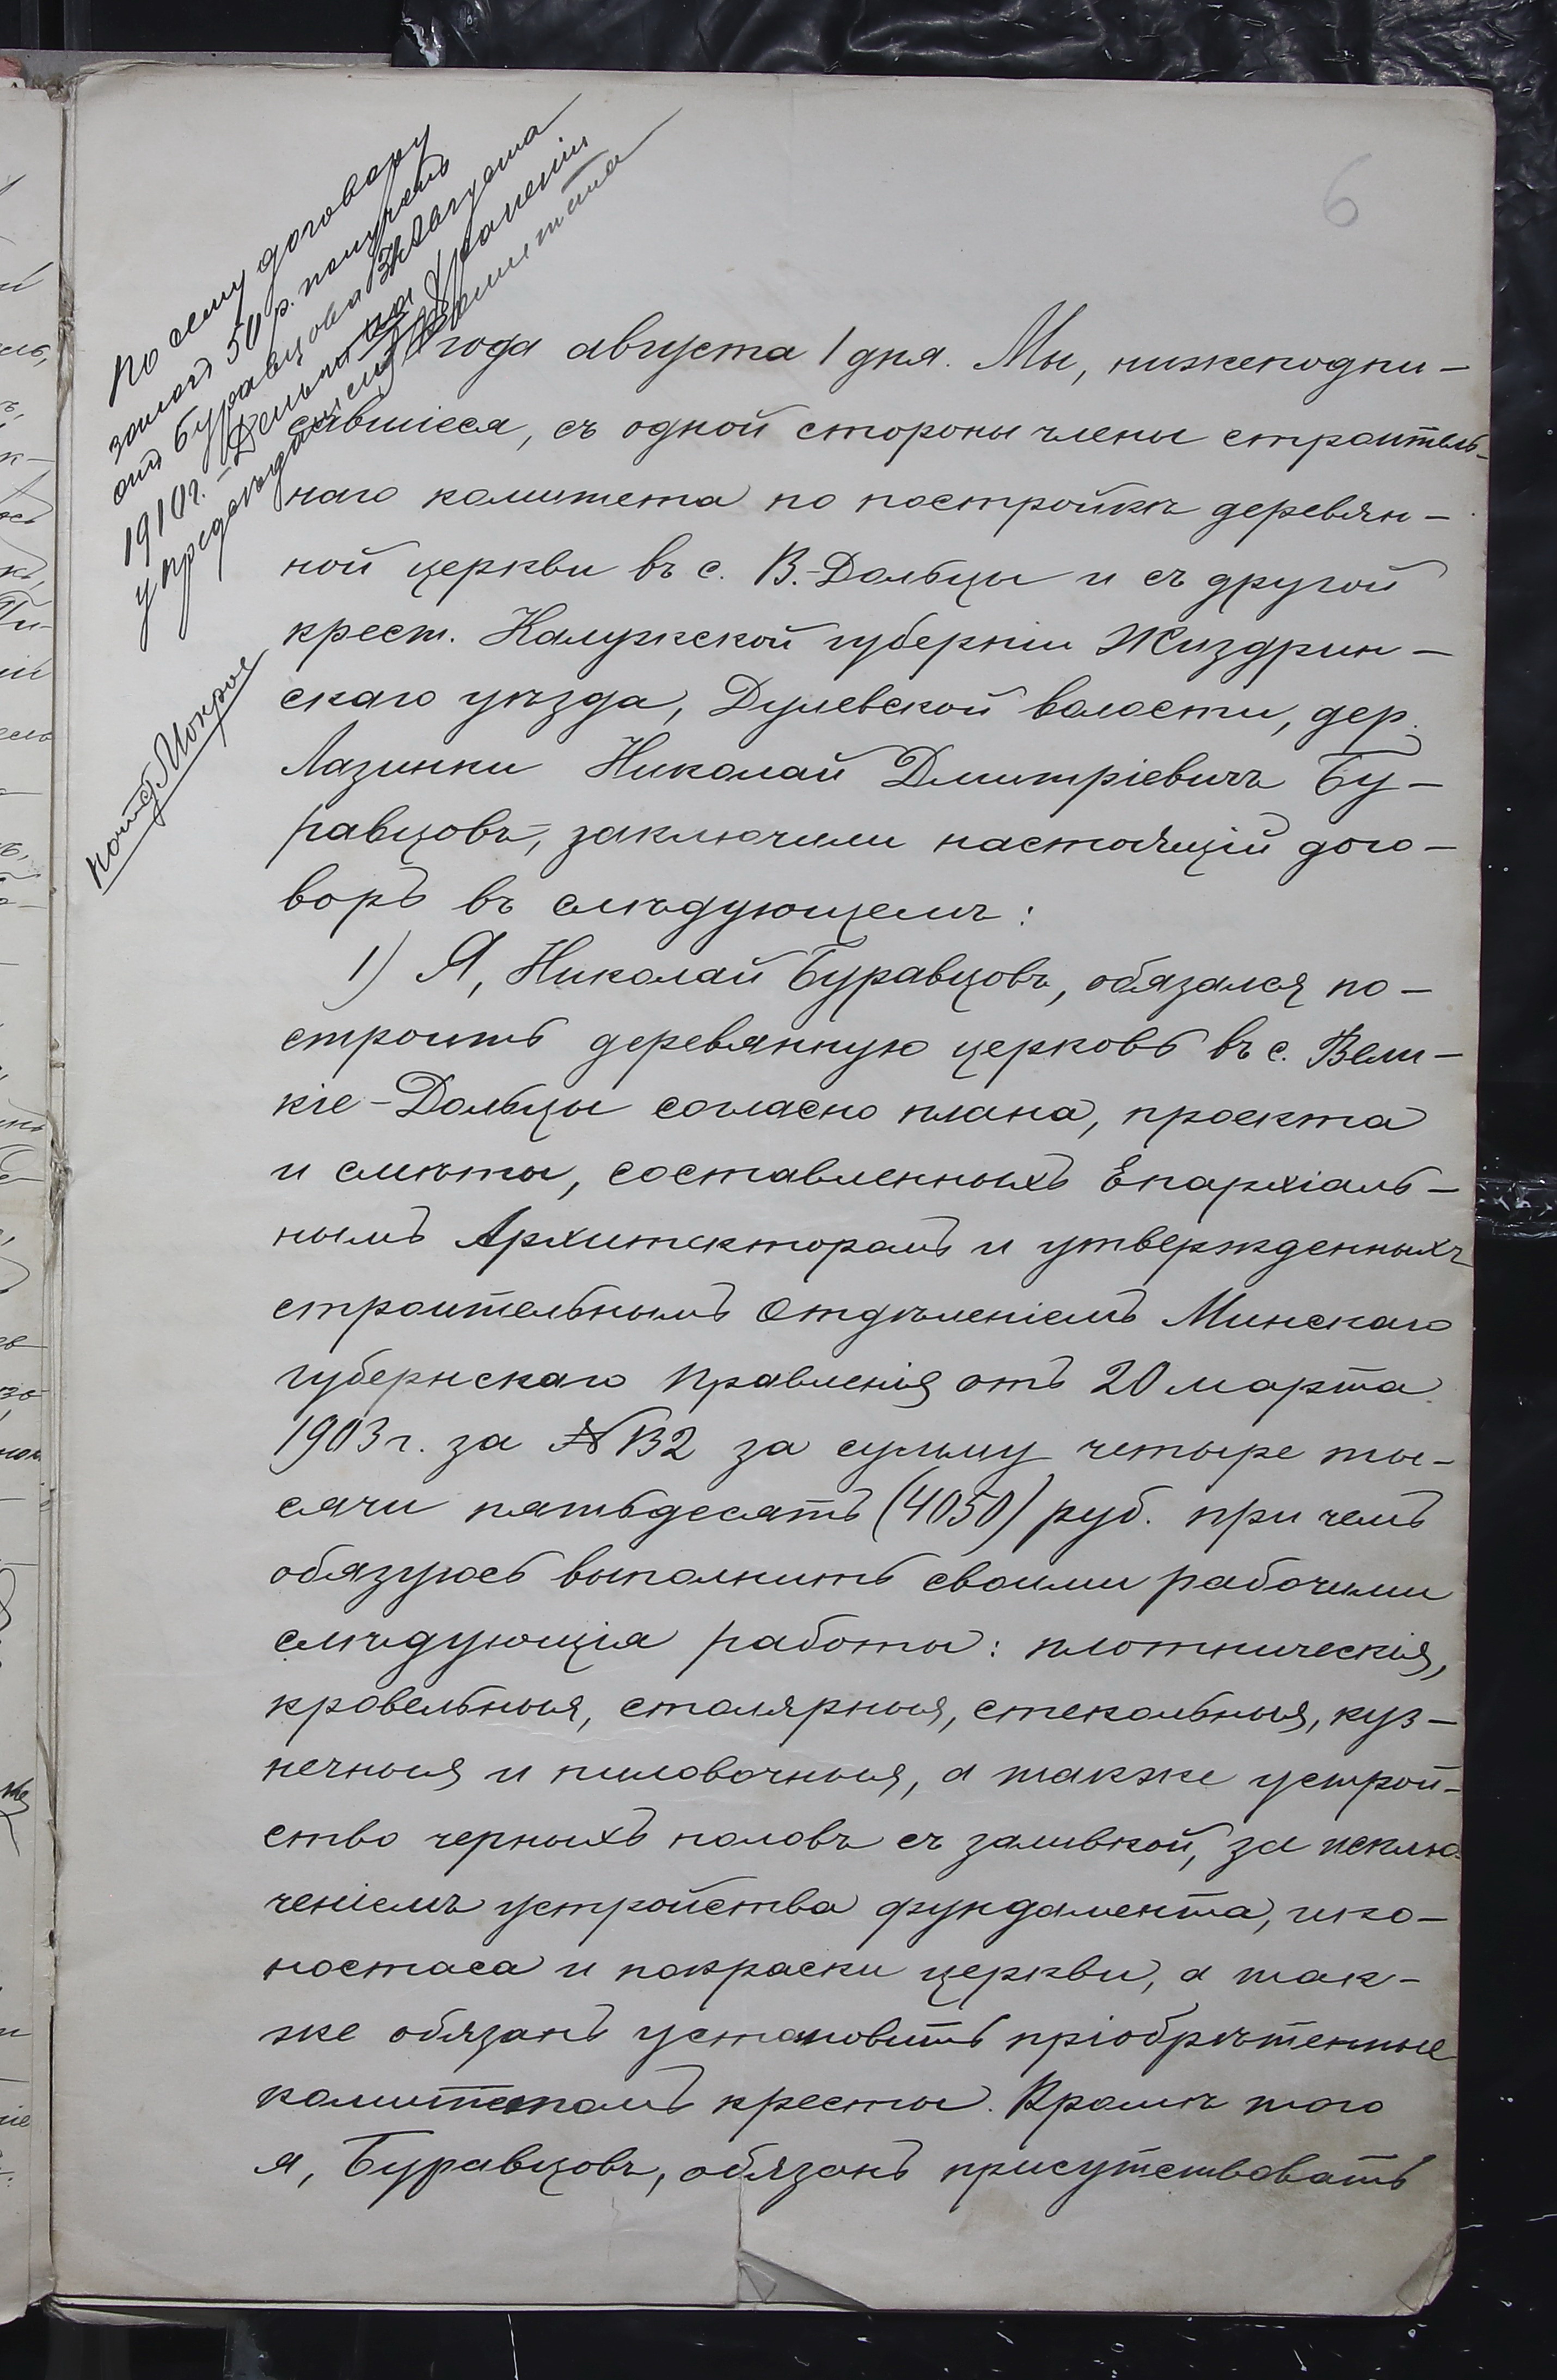 6
По сему договору
залогъ 50 р. полученъ
отъ Буравцова 3го Августа
1910 г. – Деньги на храненіи
у предсѣдателя Комитета
года августа 1 дня. Мы, нижеподпи-
савшіеся, съ одной стороны члены строитель-
наго комитета по постройкѣ деревян-
ной церкви въ с. В.-Дольцы и съ другой
крест. Калужской губерніи Жиздрин-
скаго уѣзда, Дулевской волости, дер.
Лазинки Николай Дмитріевичъ Бу-
равцовъ, заключили настоящій дого-
воръ въ слѣдующемъ:
1) Я, Николай Буравцовъ, обязался по-
строить деревянную церковь въ с. Вели-
кіе-Дольцы согласно плана, проекта
и смѣты, составленныхъ Епархіаль-
нымъ Архитекторомъ и утвержденныхъ
строительнымъ Отдѣленіемъ Минскаго
губернскаго Правленія отъ 20 марта
1903 г. за № 132 за сумму четыре ты-
сячи пятьдесятъ (4050) руб. при чемъ
обязуюсь выполнить своими рабочими
слѣдующія работы: плотническія,
кровельныя, столярныя, стекольныя, куз-
нечныя и пиловочныя, а также устрой-
ство черныхъ половъ съ заливкой, за исклю-
ченіемъ устройства фундамента, ико-
ностаса и покраски церкви, а так-
же обязанъ установить пріобрѣтенные
комитетомъ кресты. Кромѣ того
я, Буравцовъ, обязанъ присутствовать